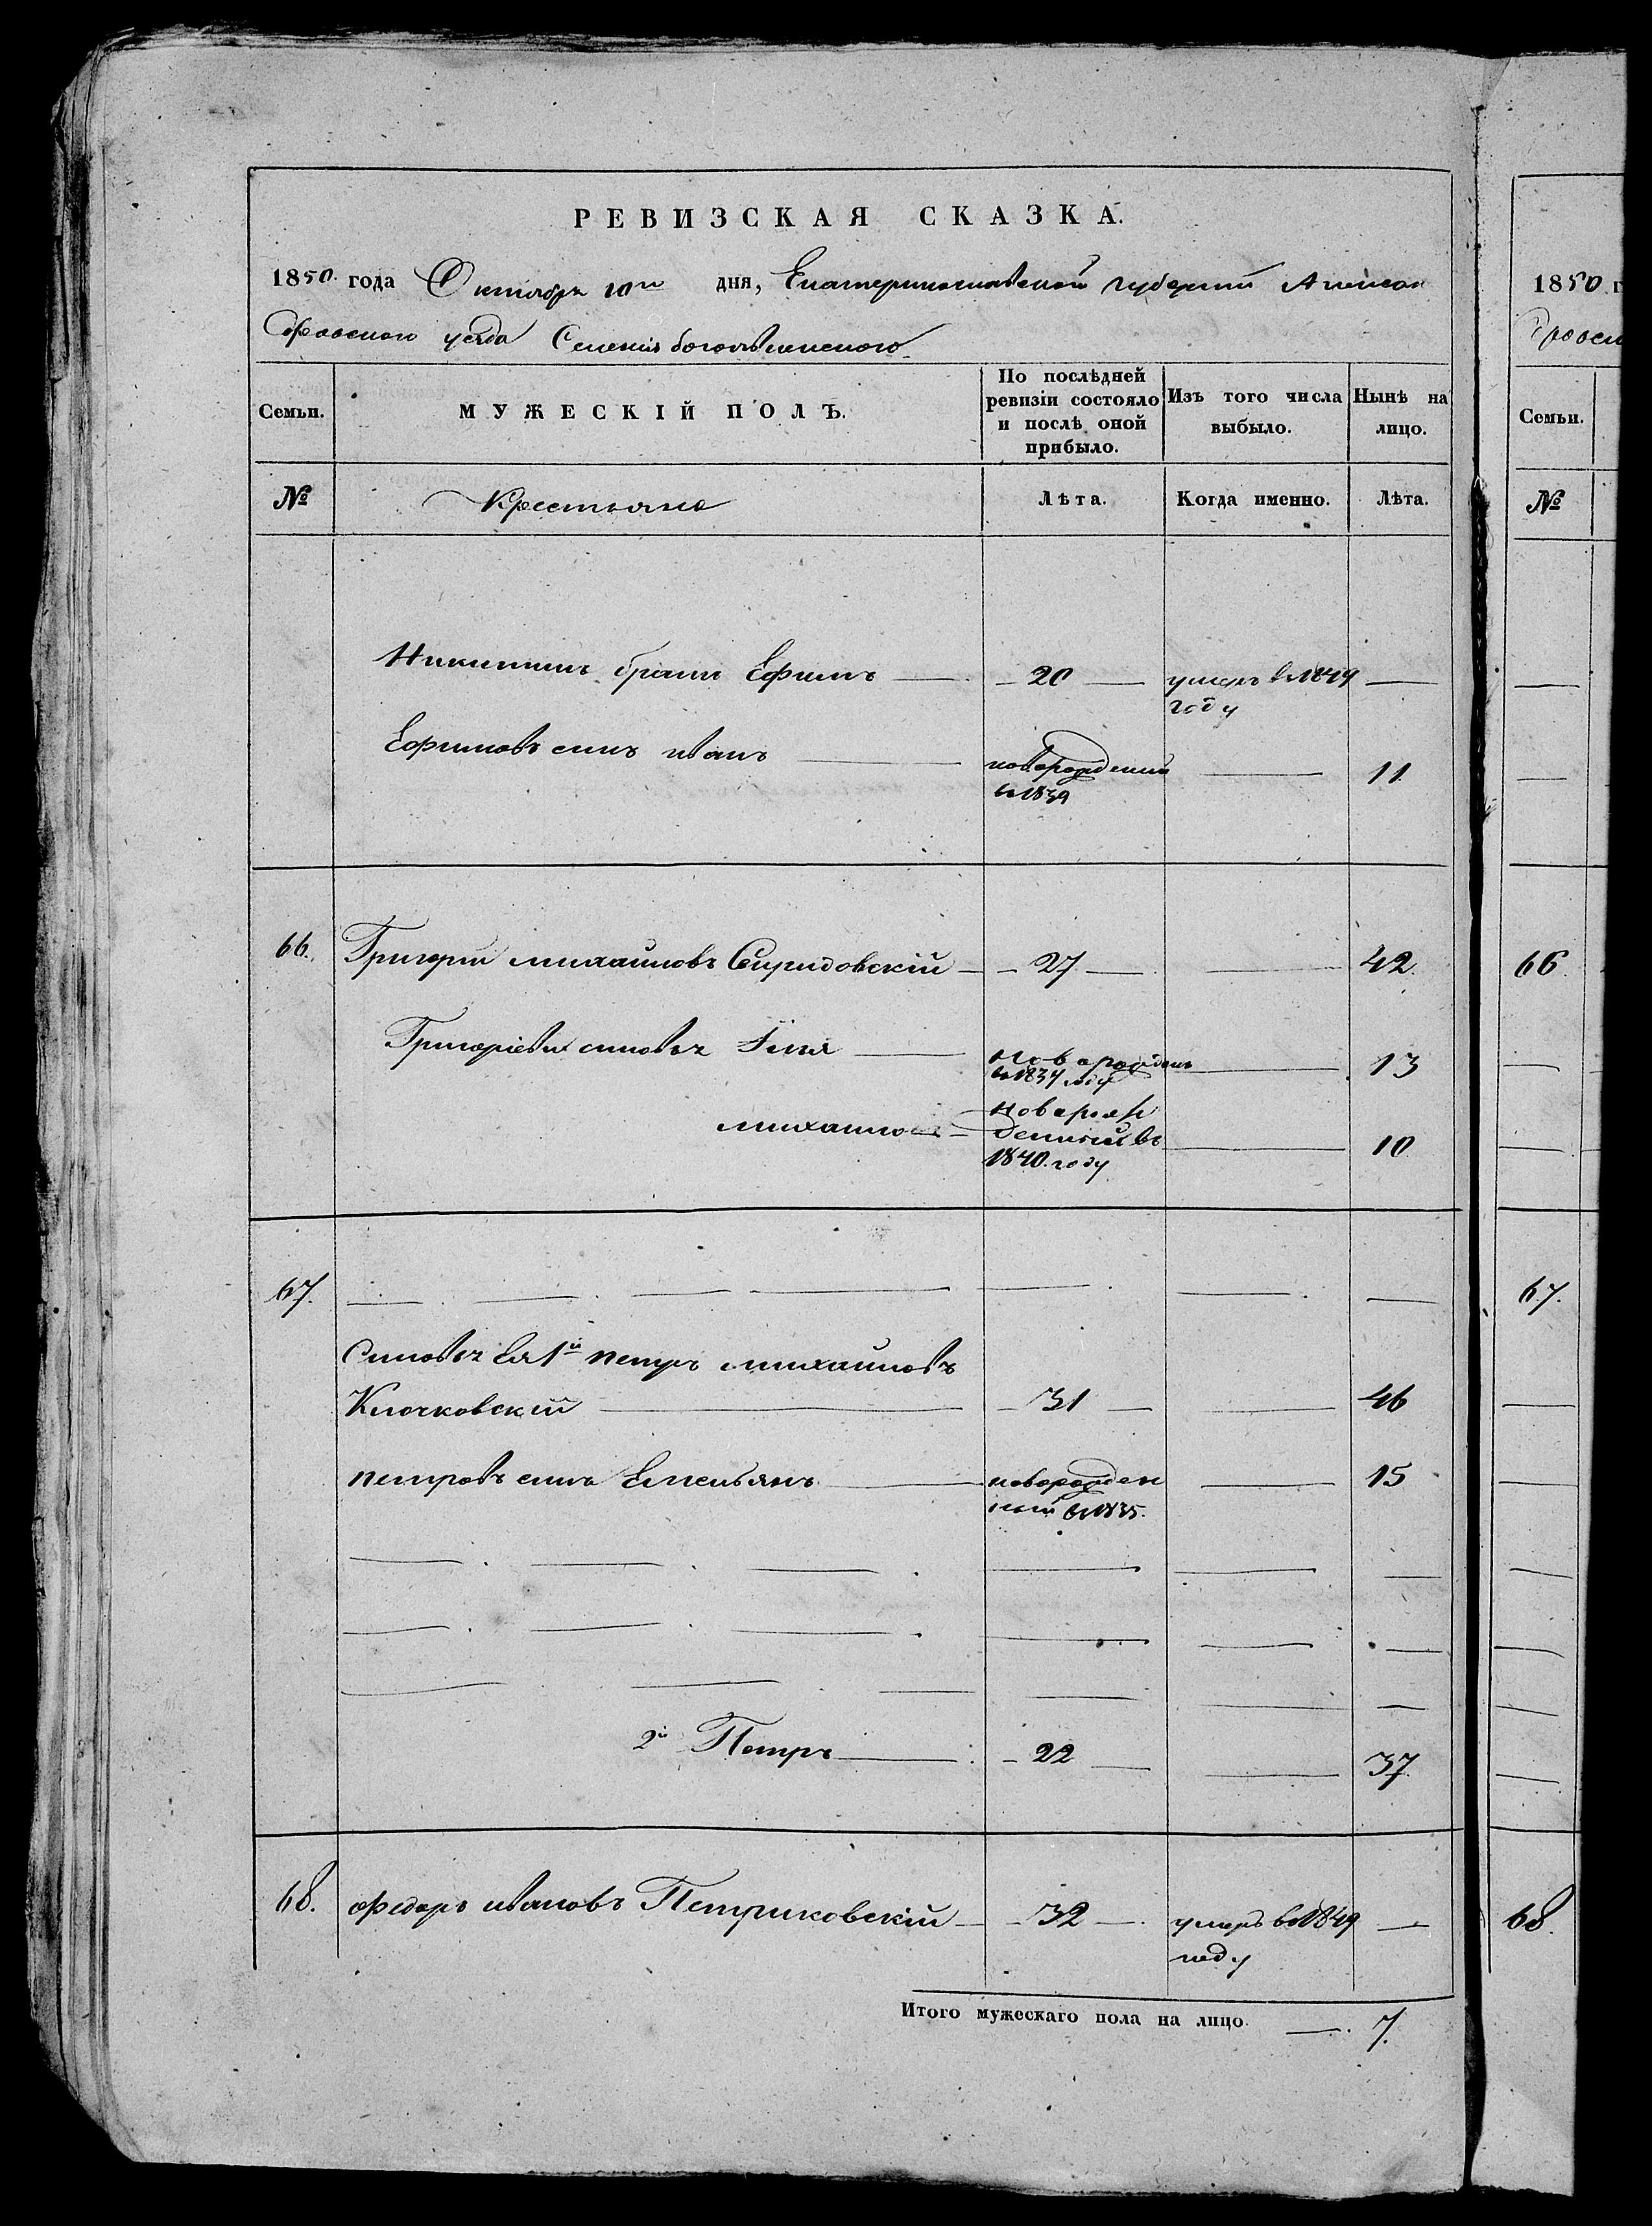 РЕВИЗСКАЯ СКАЗКА.
1850. года Октября 10го дня, Екатеринославской губерніи Алексан
дровского уезда Селенія богоявленского
Семьи.
МУЖЕСКІЙ ПОЛЪ.
По послѣдней
ревизіи состояло
и послѣ оной
прибыло.
Изъ того числа
выбыло.
Нынѣ на
лицо.
№
Крестьяне
Лѣта.
Когда именно.
Лѣта.
Никитинъ братъ Ефимъ — 20 — умеръ в 1849 —
году
Ефимовъ синъ иванъ — новорожденый — 11
в 1839
66. Григорій михаиловъ Свиридовскій — 27 — 42.
Григоріеви синовьz Iлья — новарожденъ — 13
в 1837 году
михаило — новарож
денный въ — 10
1840. году
67.
Синовьz Ея 1й петръ михаиловъ
Ключковскій — 31 — 46
петровъ синъ Емельянъ — новорожден — 15
ный в 1835.
2й Петръ — 22 — 37.
68. федоръ ивановъ Петриковскій — 32 — умеръ в 1849 —
году
Итого мужескаго пола на лицо. — 7.
1850 г
дровск
Семьи.
№
66.
67.
68.